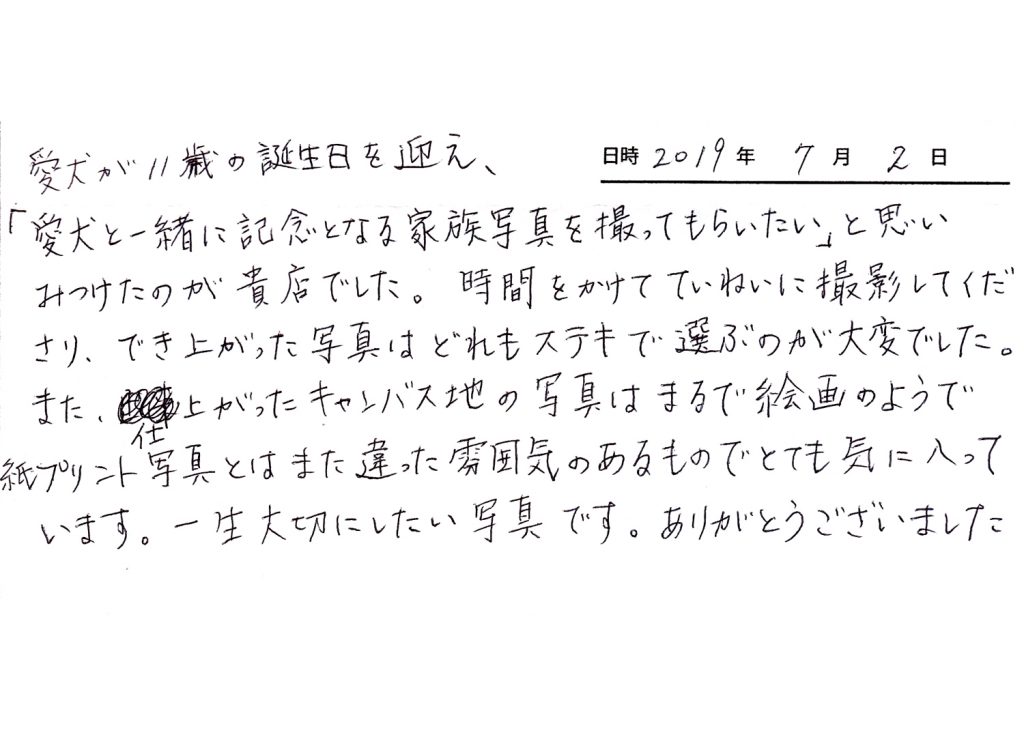 日時 2019年 7月 2日
愛犬が11歳の誕生日を迎え、
「愛犬と一緒に記念となる家族写真を撮ってもらいたい」と思い
みつけたのが貴店でした。時間をかけてていねいに撮影してくだ
さり、でき上がった写真はどれもステキで選ぶのが大変でした。
また、仕上がったキャンバス地の写真はまるで絵画のようで
紙プリント写真とはまた違った雰囲気のあるものでとても気に入って
います。一生大切にしたい写真です。ありがとうございました